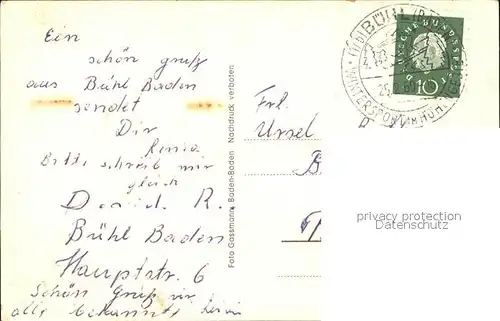 Ein
schön gruß
aus Bühl Baden
sendet
Dir
Bitte schreib mir
gleich
R.
Bühl Baden
Hauptstr. 6
Schön Gruß
alle bekannte
Foto Gassmann, Baden-Baden Nachdruck verboten
BÜHL
DEUTSCHE BUNDESPOST
10
WINTERSPORT
Frl.
Ursel
privacy protection
Datenschutz